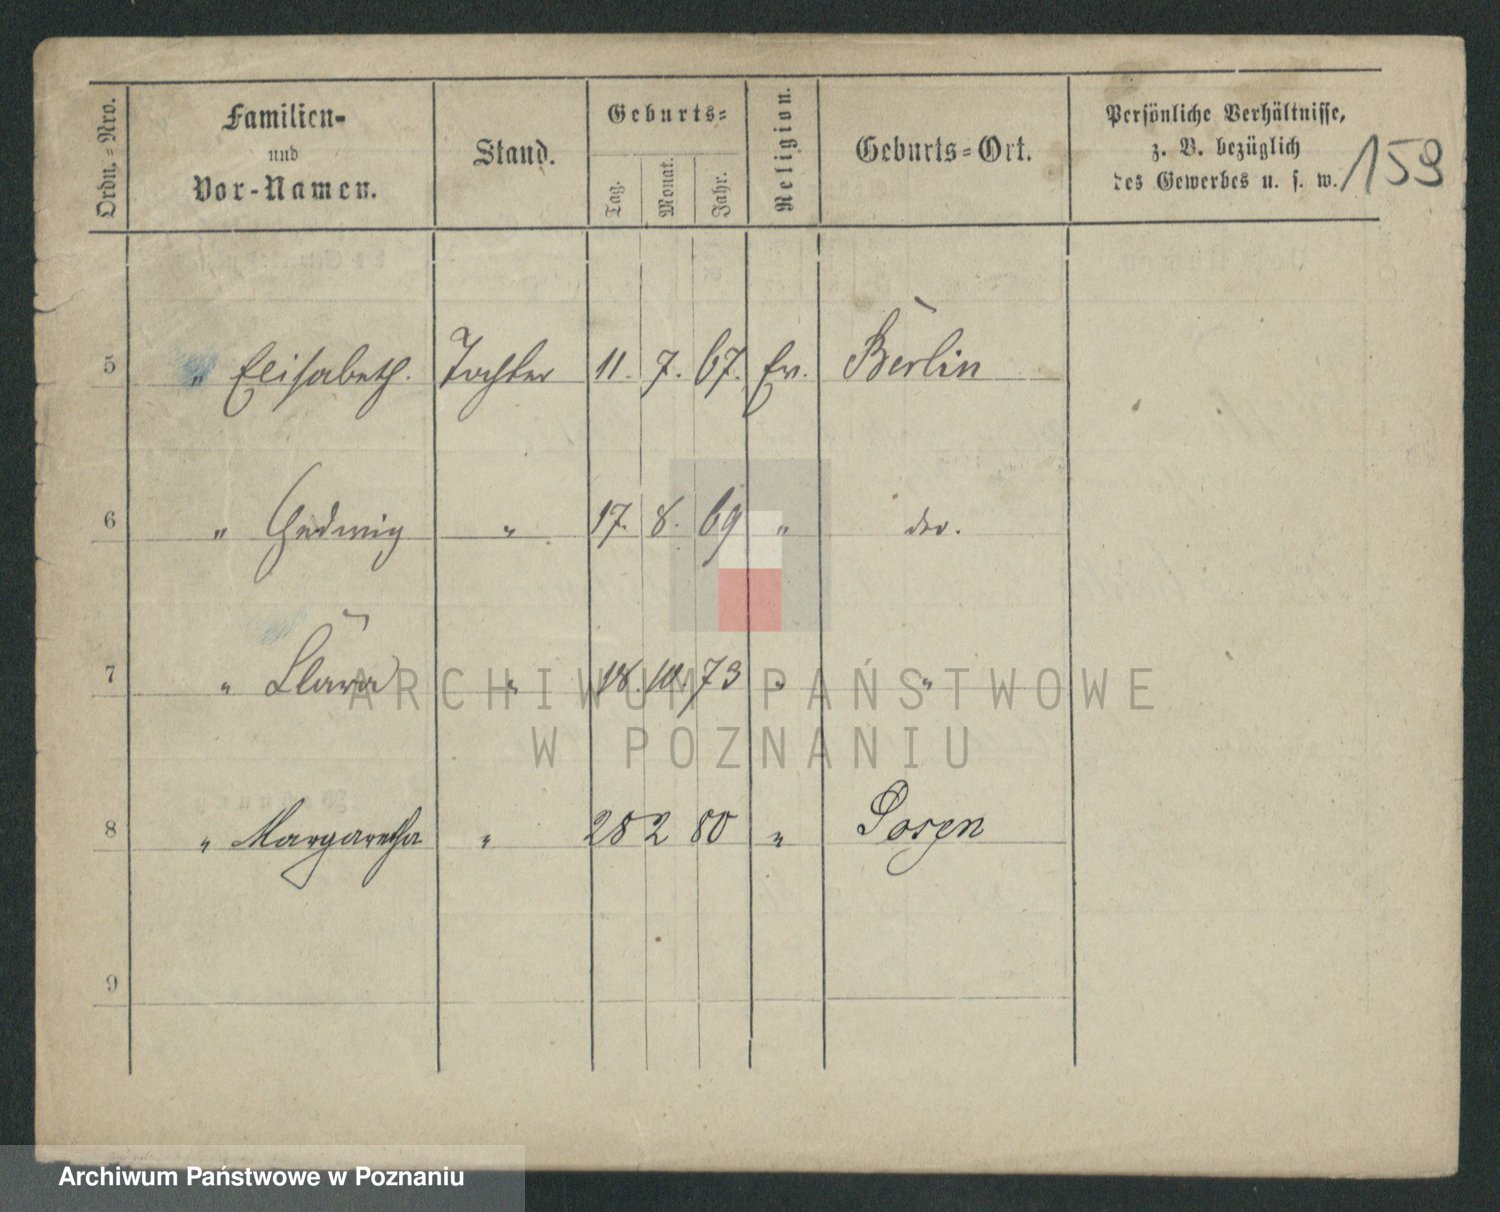 Ordn.-Nro.
Familien-
und
Vor-Namen.
Stand.
Geburts-
Tag. Monat. Jahr.
Religion.
Geburts-Ort.
Persönliche Verhältnisse,
z. B. bezüglich
des Gewerbes u. s. w.
159
5 " Elisabeth. Tochter 11. 7. 67. Ev. Berlin
6 " Hedwig " 17. 8. 69 " do.
7 " Clara " 18. 10. 73 " "
8 " Margaretha " 28 2 80 " Posen
9
ARCHIWUM PAŃSTWOWE
W POZNANIU
Archiwum Państwowe w Poznaniu